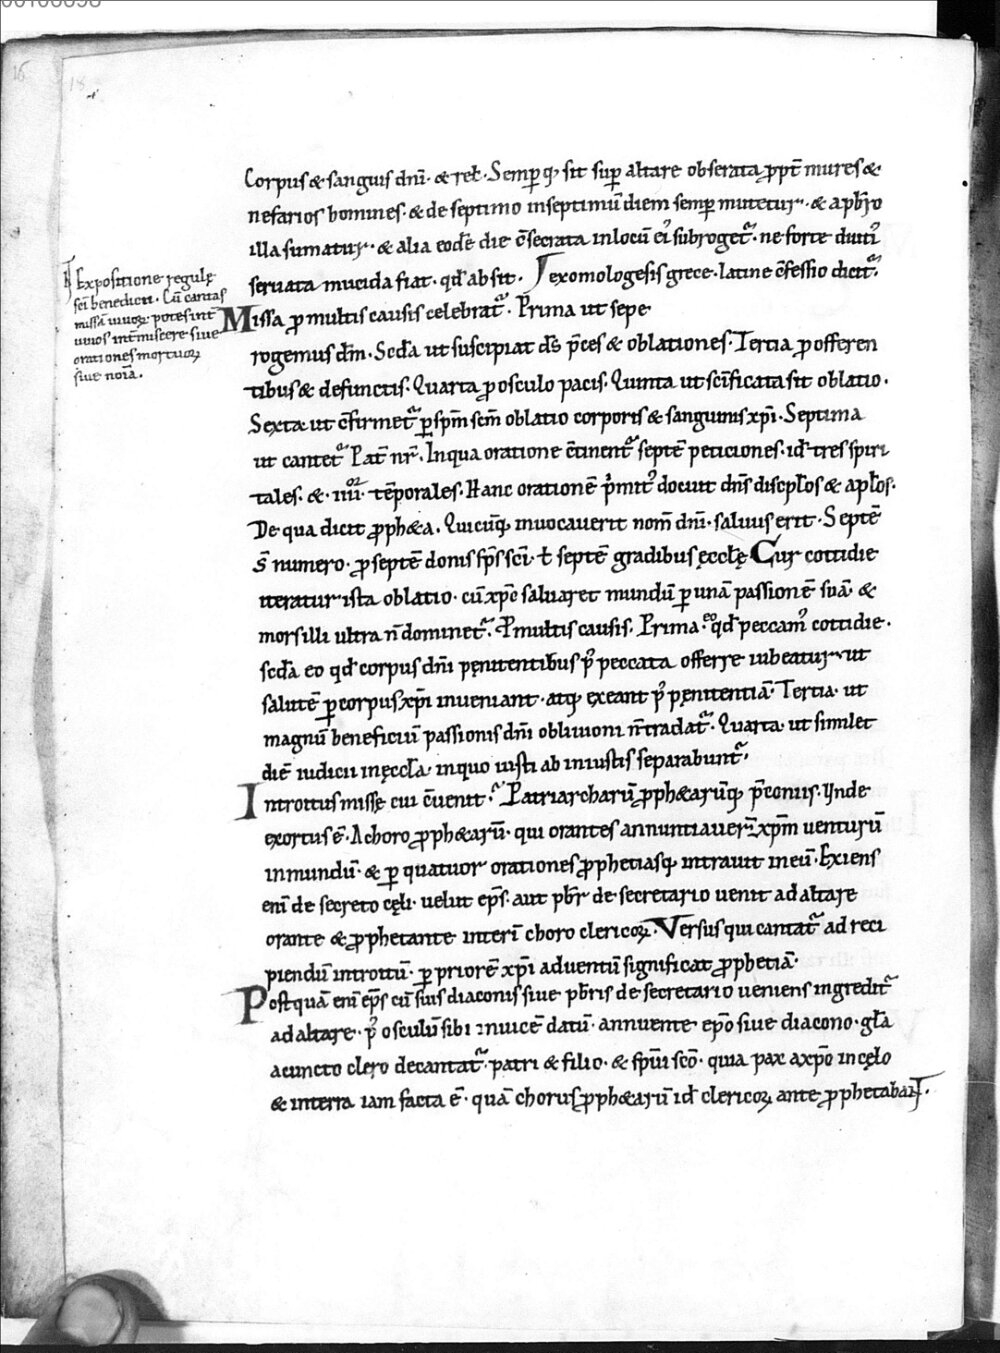 16
18
Corpus & sanguis dn̄i · & rel̄ · Semp̱ q; sit sup̱ altare obserata ꝓpt̄ mures &
nefarios homines · & de septimo inseptimū diem semp̱ mutetur · & ap̄bro
illa sumatur · & alia eodē die c̄secrata inlocū ei᾿ subroget᷑ · ne forte diuti᾿
seruata mucida fiat · qd̄ absit · exomologesis grece · latine c̄fessio dicit᷑ ·
Expositione regulę
sc̄i benedicti · Cū cantas
missā uiuoꝝ potes int̄
uiuos int̄miscere siue
orationes mortuoꝝ
siue noīa ·
Missa ꝓ multis causis celebrat᷑ · Prima ut sepe
rogemus dm̄ · Scd̄a ut suscipiat ds̄ p̄ces & oblationes · Tertia ꝓ offeren
tibus & defunctis · Quarta ꝓ osculo pacis · Quinta ut sc̄ificata sit oblatio ·
Sexta ut c̄firmet᷑ ꝑ spm̄ scm̄ oblatio corporis & sanguinis xp̄i · Septima
ut cantet᷑ Pat̄ nr̄ · In qua oratione c̄tinent᷑ septē peticiones · id̄ tres spiri
tales · & · iiii᷒ʳ · tēporales · Hanc orationē p̄mit᾿ docuit dn̄s discipl̄os & apl̄os ·
De qua dicit ꝓph&a · Quicūq; inuocauerit nom̄ dn̄i · saluus erit · Septē
s̄ numero · ꝓ septē donis sp̄s sc̄i · ł septē gradibus ęccl̄ę Cur cottidie
iteratur ista oblatio · cū xp̄c saluaret mundū ꝑ unā passionē suā · &
mors illi ultra n̄ dominet᷑ · P multis causis · Prima · eo qd̄ peccam᾿ cottidie ·
scd̄a eo qd̄ corpus dn̄i pęnitentibus p᾿ peccata offerre iubeatur ut
salutē ꝑ corpus xp̄i inueniant · atq; exeant p᾿ pęnitentiā · Tertia · ut
magnū beneficiū passionis dn̄i obliuioni n̄ tradat᷑ · Quarta · ut similet
diē iudicii inęccl̄a · inquo iusti ab iniustis separabunt᷑ ·
Introitus missę cui c̄uenit · Patriarcharū ꝓph&arūq; p̄coniis · Vnde
exortus ē · A choro ꝓph&arū · qui orantes annuntiauer̄ xpm̄ uenturū
inmundū · & ꝑ quatuor orationes ꝓphetiasq; intrauit in eū · Exiens
eni᷒ de secreto cęli · uelut ep̄s · aut pbr̄ de secretario uenit ad altare
orante & ꝓphetante interi᷒ choro clericoꝝ · Versus qui cantat᷑ ad reci
piendū introitū · ꝑ priorē xp̄i aduentū significat ꝓphetiā ·
Postquā eni᷒ ep̄s cū suis diaconis siue pbr̄is de secretario ueniens ingredit᷑
ad altare · p᾿ osculū sibi inuicē datū · annuente ep̄o siue diacono · gl̄a
acuncto clero decantat᷑ · patri & filio · & spū sc̄o · quia pax a xp̄o in cęlo
& interra iam facta ē · quā chorus ꝓph&arū id̄ clericoꝝ ante ꝓphetabant ·